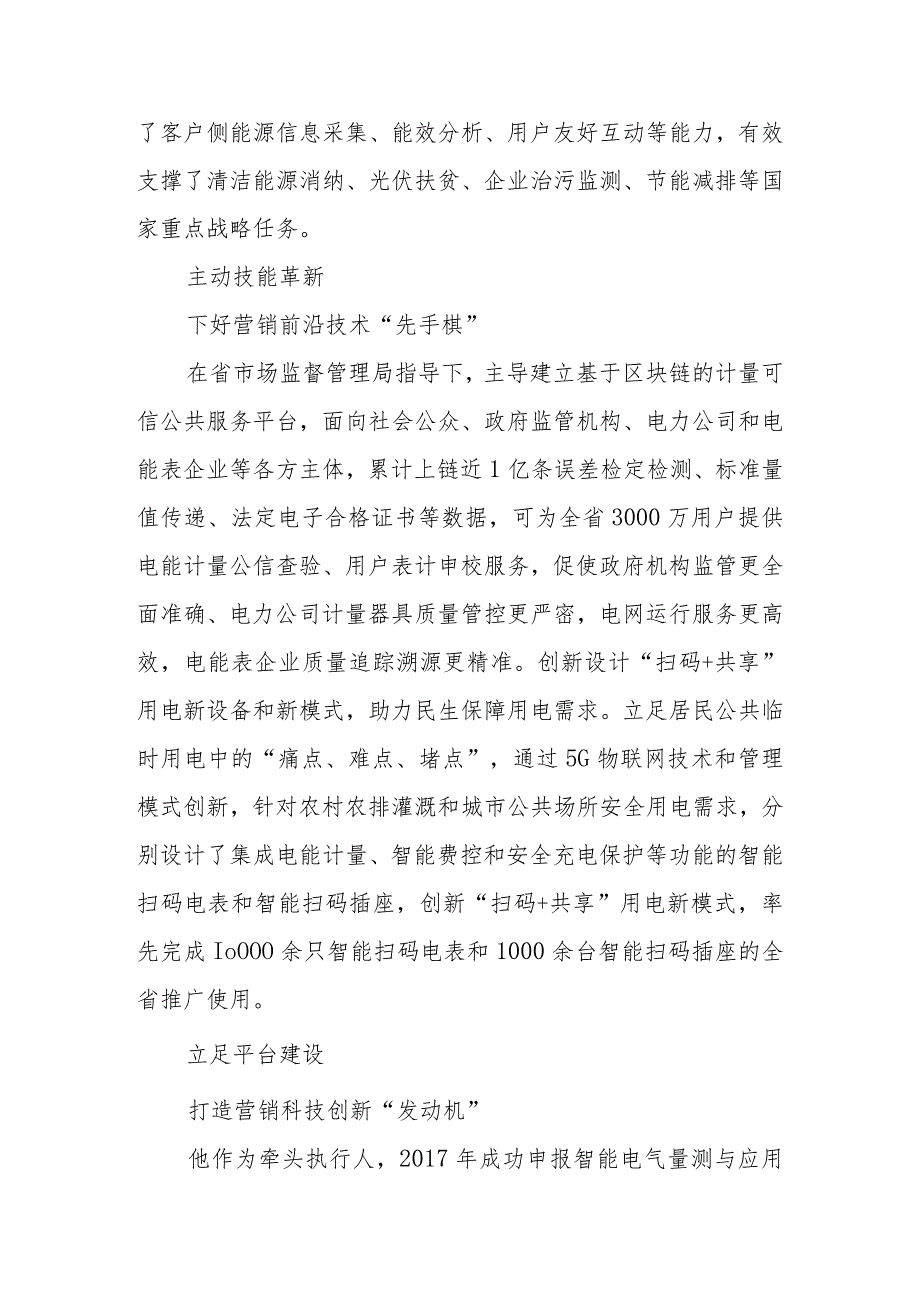 了客户侧能源信息采集、能效分析、用户友好互动等能力，有效
支撑了清洁能源消纳、光伏扶贫、企业治污监测、节能减排等国
家重点战略任务。
主动技能革新
下好营销前沿技术“先手棋”
在省市场监督管理局指导下，主导建立基于区块链的计量可
信公共服务平台，面向社会公众、政府监管机构、电力公司和电
能表企业等各方主体，累计上链近 1 亿条误差检定检测、标准量
值传递、法定电子合格证书等数据，可为全省 3000 万用户提供
电能计量公信查验、用户表计申校服务，促使政府机构监管更全
面准确、电力公司计量器具质量管控更严密，电网运行服务更高
效，电能表企业质量追踪溯源更精准。创新设计“扫码+共享”
用电新设备和新模式，助力民生保障用电需求。立足居民公共临
时用电中的“痛点、难点、堵点”，通过 5G 物联网技术和管理
模式创新，针对农村农排灌溉和城市公共场所安全用电需求，分
别设计了集成电能计量、智能费控和安全充电保护等功能的智能
扫码电表和智能扫码插座，创新“扫码+共享”用电新模式，率
先完成 IoOOO 余只智能扫码电表和 1000 余台智能扫码插座的全
省推广使用。
立足平台建设
打造营销科技创新“发动机”
他作为牵头执行人，2017 年成功申报智能电气量测与应用